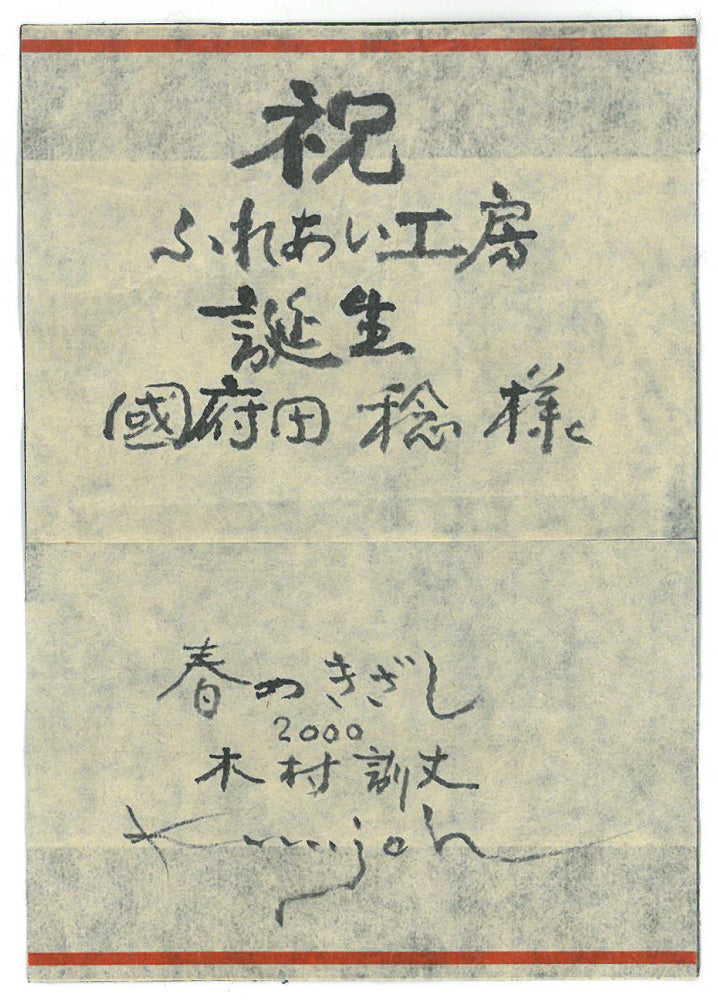 祝
ふれあい工房
誕生
國府田 稔 様
春のきざし
2000
木村訓丈
Kunjoh